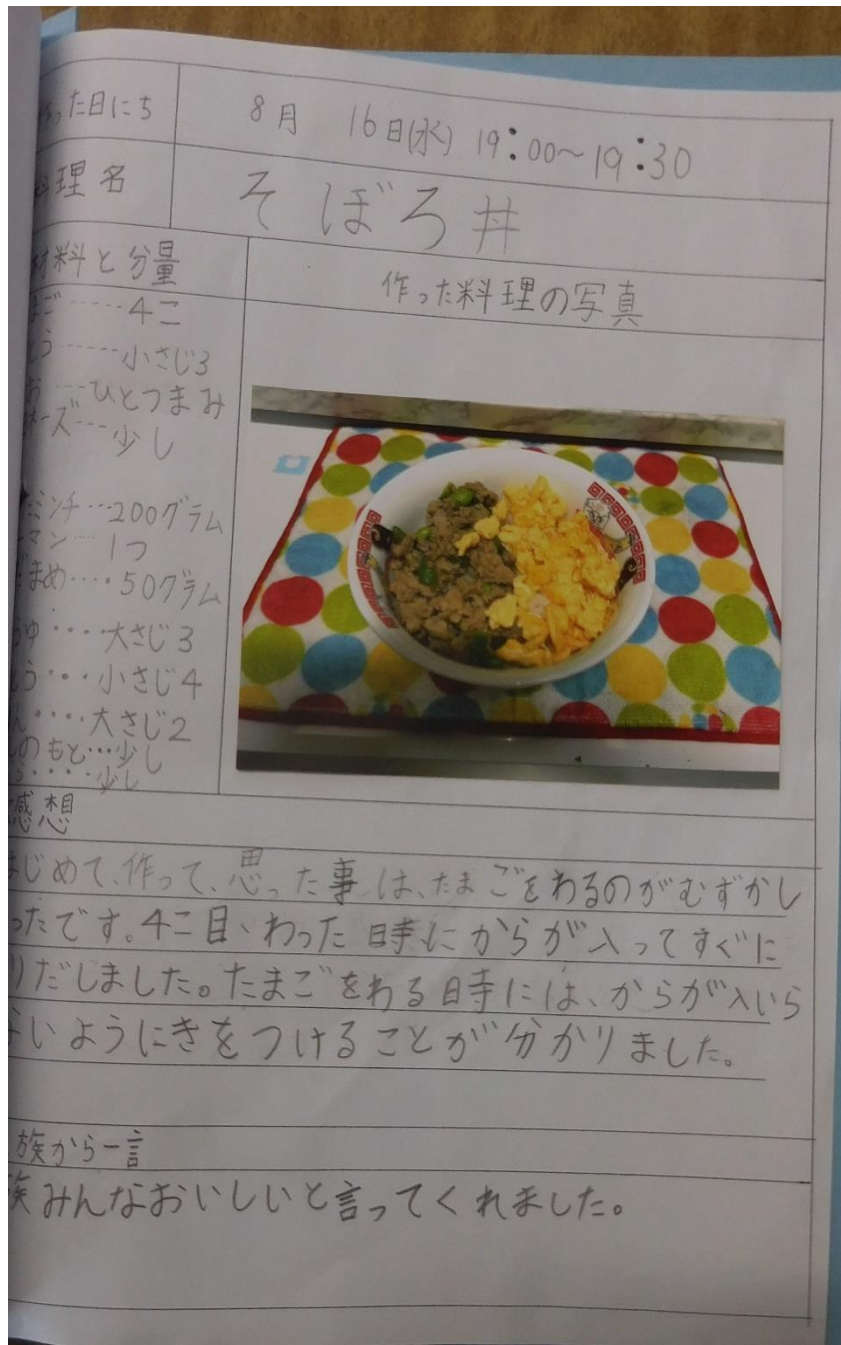 った日にち
8月 16日(水) 19:00〜19:30
理名
そぼろ丼
材料と分量
作った料理の写真
まご……4こ
とう……小さじ3
お…ひとつまみ
ネーズ…少し
ミンチ…200グラム
ーマン…1つ
だまめ…・50グラム
うゆ・・・・大さじ3
とう・・・小さじ4
ん・・・・大さじ2
しのもと…少し
少し
感想
はじめて、作って、思った事は、たまごをわるのがむずかし
ったです。4こ目、わった時にからが入ってすぐに
りだしました。たまごをわる時には、からが入いら
ないようにきをつけることが分かりました。
族から一言
族みんなおいしいと言ってくれました。